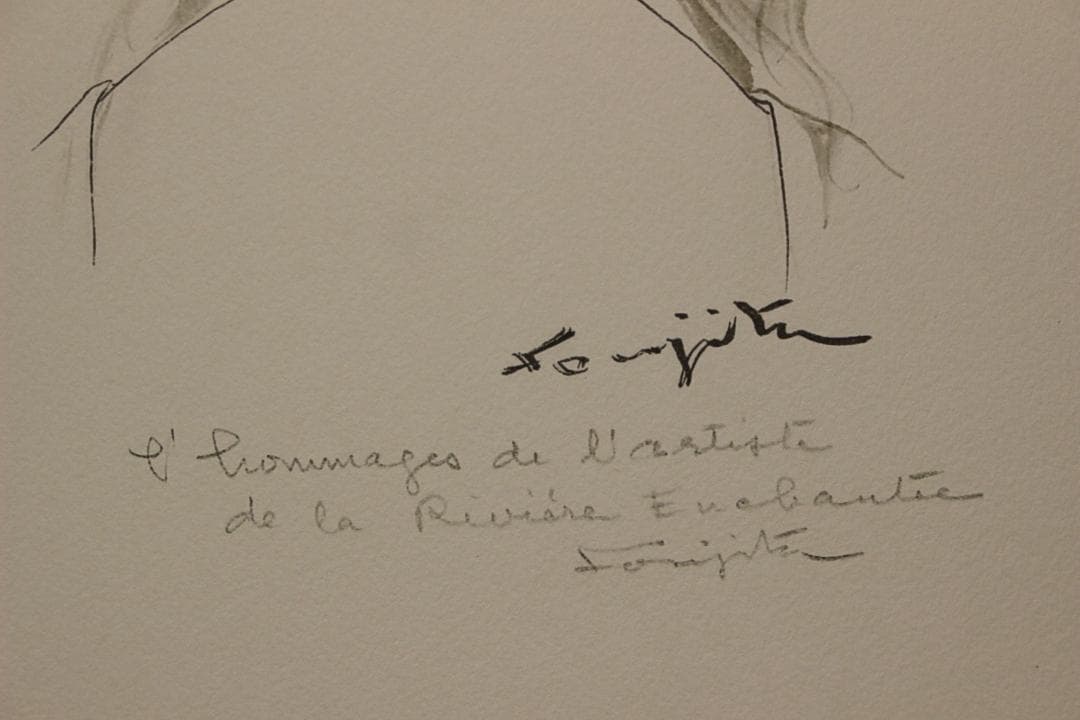 Foujita
l'hommages de l'artiste
de la Riviére Enchantée
Foujita